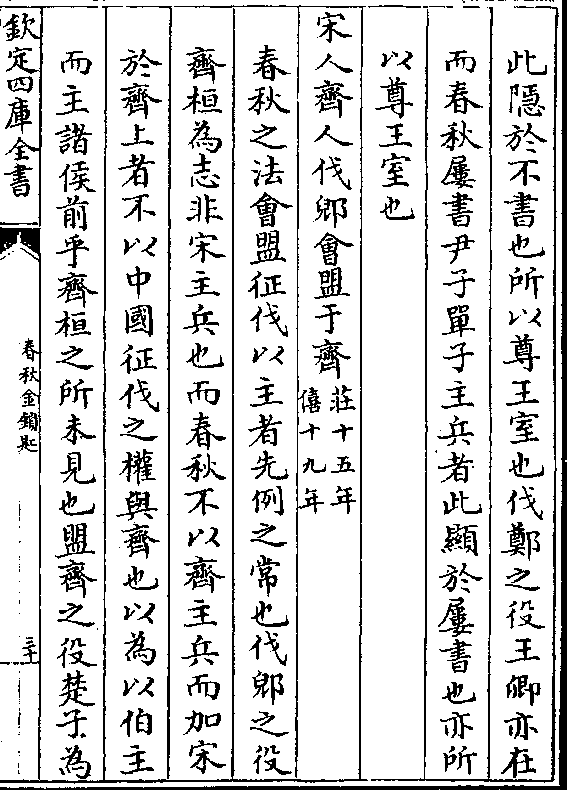 此隱於不書也所以尊王室也伐鄭之役王卿亦在
而春秋屢書尹子單子主兵者此顯於屢書也亦所
以尊王室也
宋人齊人伐郳會盟于齊
莊十五年
僖十九年
春秋之法會盟征伐以主者先例之常也伐郳之役
齊桓為志非宋主兵也而春秋不以齊主兵而加宋
於齊上者不以中國征伐之權與齊也以為以伯主
而主諸侯前乎齊桓之所未見也盟齊之役楚子為
欽定四庫全書
春秋金鎖匙
三十